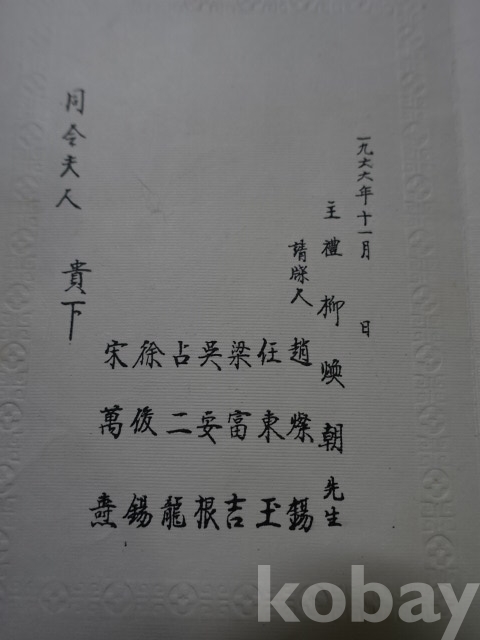 一九六六年十一月 日
主禮 柳煥朝 先生
請牒人
趙燦錫
任東玉
梁富吉
吳妥根
占二龍
徐俊錫
宋萬
同令夫人 貴下
kobay